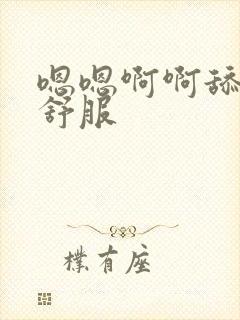 嗯嗯啊啊舔
舒服
樸有座